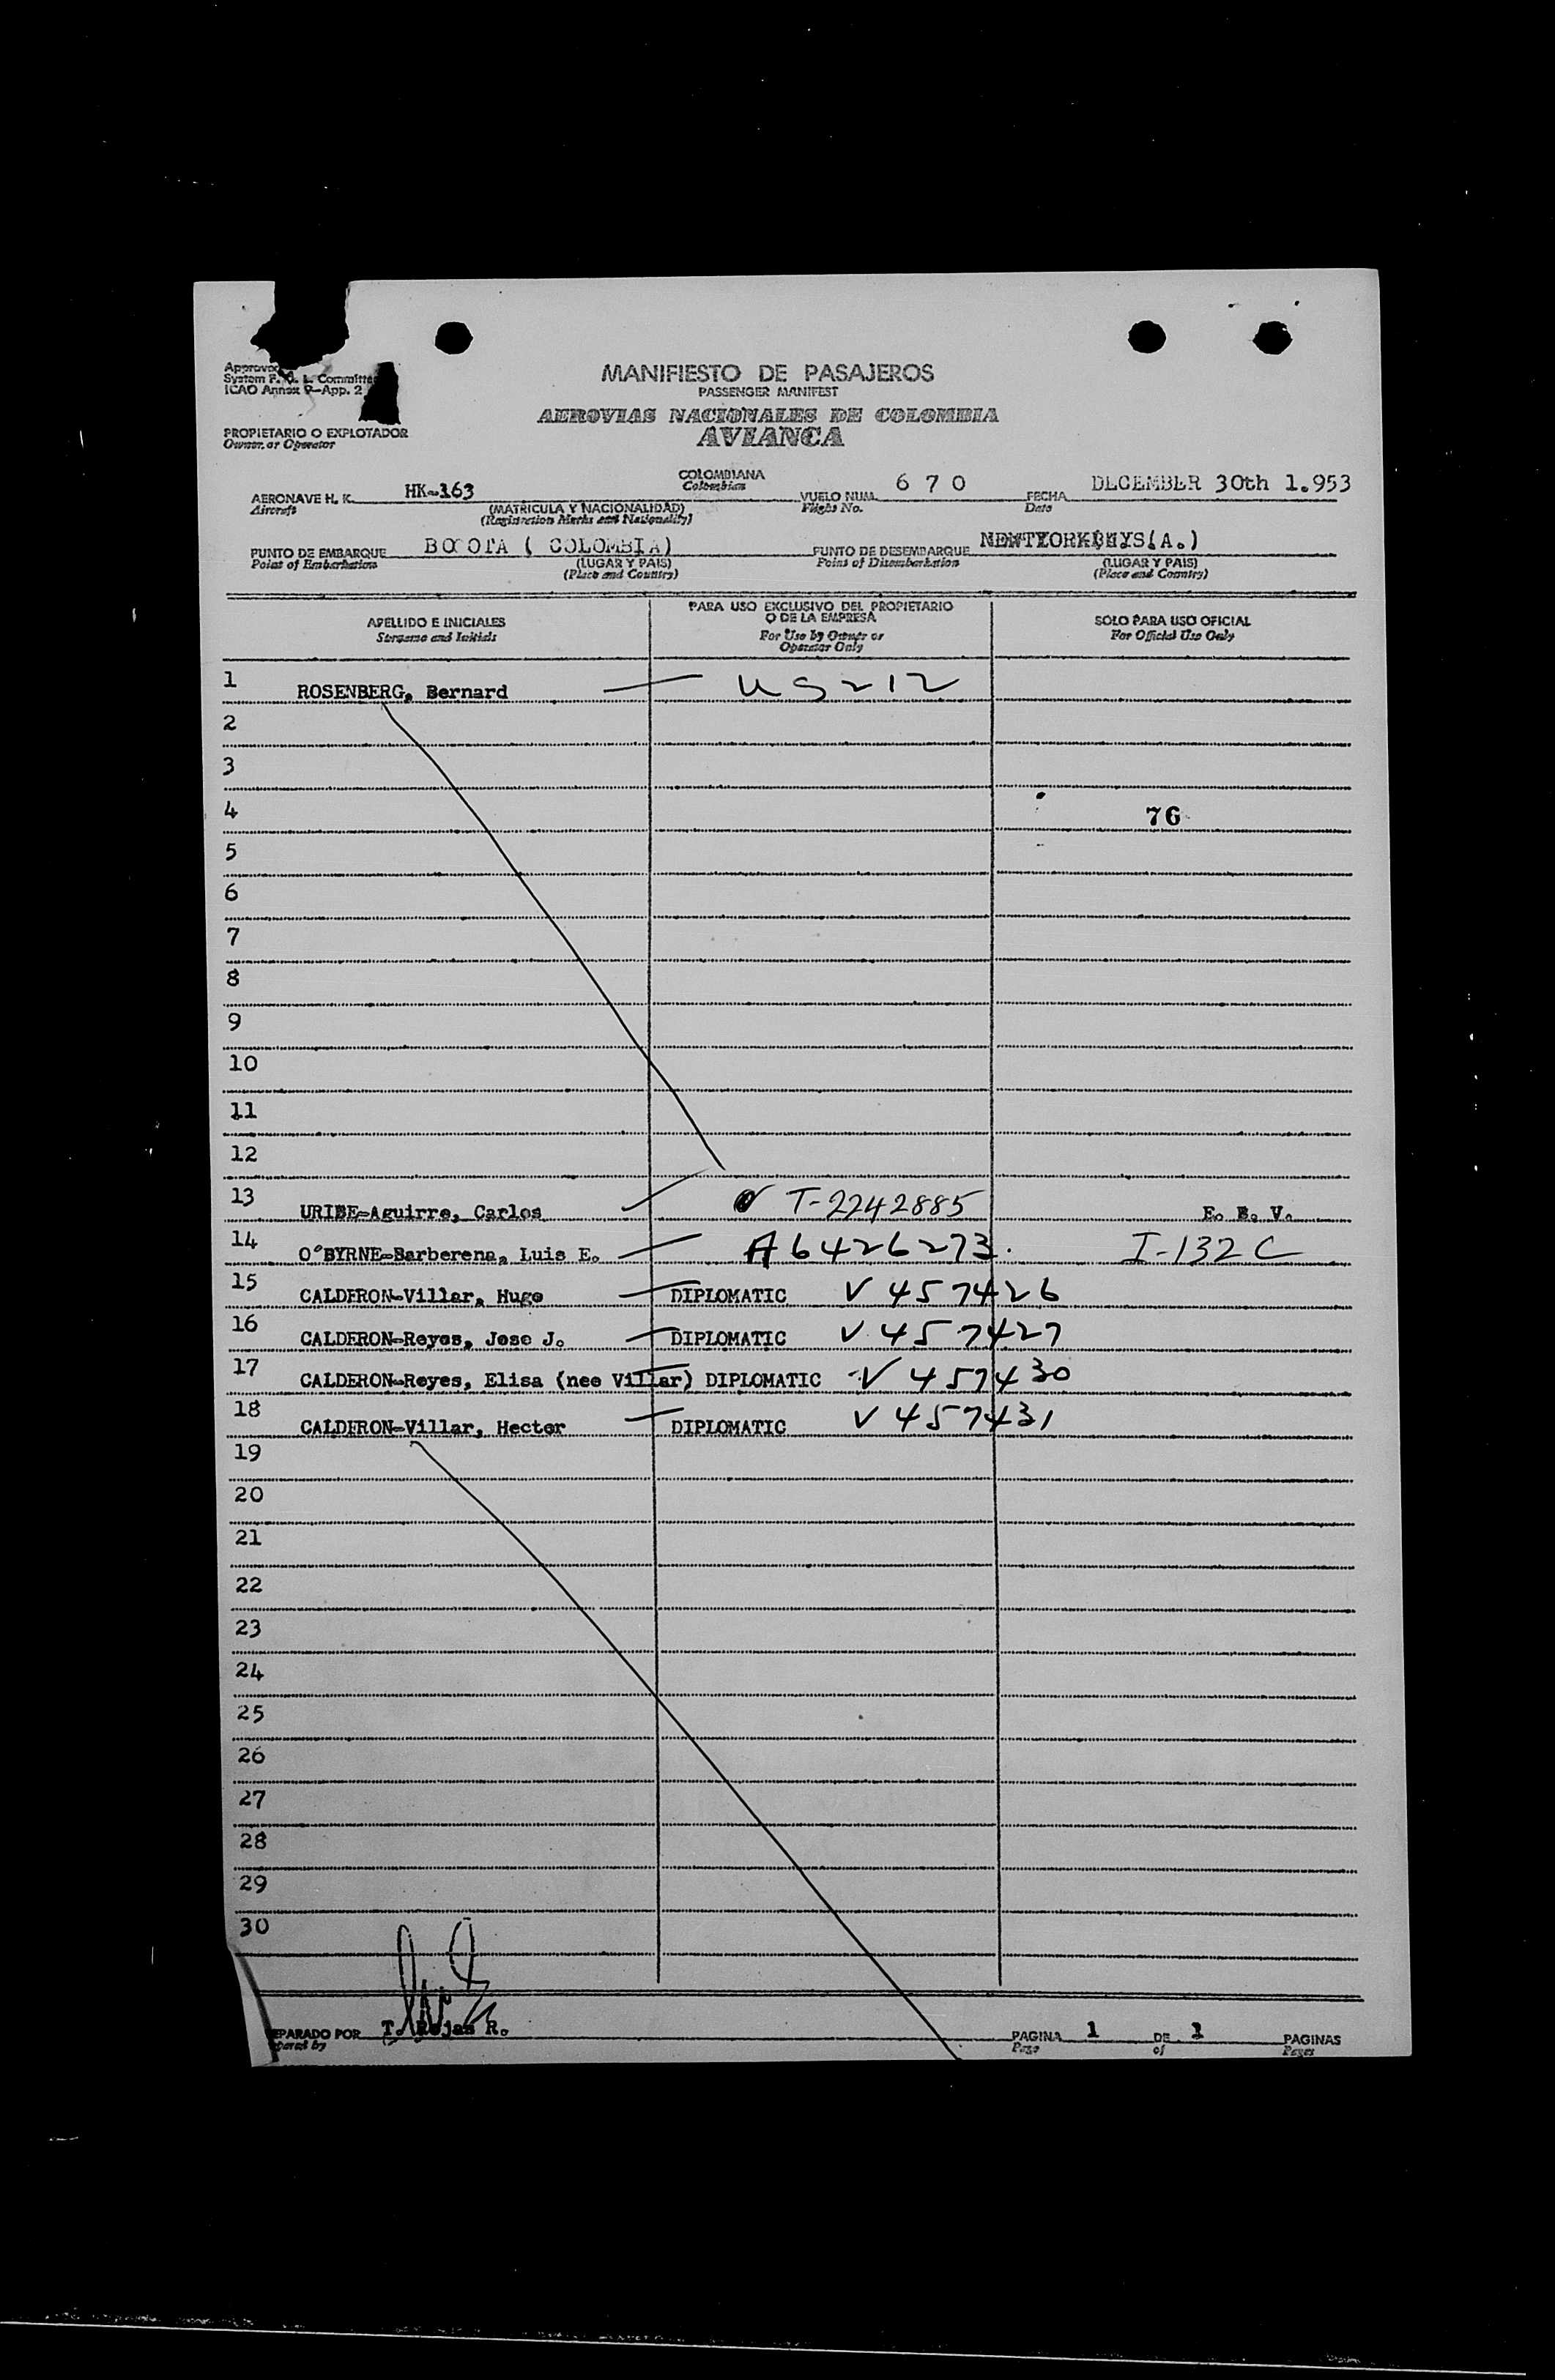 Approved
System F. A. L. Committee
ICAO Annex 9-App. 2
MANIFIESTO DE PASAJEROS
PASSENGER MANIFEST
AEROVIAS NACIONALES DE COLOMBIA
AVIANCA
PROPIETARIO O EXPLOTADOR
Owner or Operator
AERONAVE H. K. HK-163 COLOMBIANA VUELO NUM. 6 7 0 FECHA DECEMBER 30th 1.953
Aircraft Colombian Flight No. Date
(MATRICULA Y NACIONALIDAD)
(Registration Marks and Nationality)
PUNTO DE EMBARQUE BOGOTA ( COLOMBIA) PUNTO DE DESEMBARQUE
Point of Embarkation (LUGAR Y PAIS) Point of Disembarkation (LUGAR Y PAIS)
(Place and Country) (Place and Country)
APELLIDO E INICIALES PARA USO EXCLUSIVO DEL PROPIETARIO O DE LA EMPRESA SOLO PARA USO OFICIAL
Surname and Initials For Use by Owner or Operator Only For Official Use Only
1 ROSENBERG, Bernard US 212
2
3
4 76
5
6
7
8
9
10
11
12
13 URIBE-Aguirre, Carlos T-2242885 E. B. V.
14 O'BYRNE-Barberena, Luis E. A6426273. I-132C
15 CALDERON-Villar, Hugo DIPLOMATIC V 457426
16 CALDERON-Reyes, Jose J. DIPLOMATIC V 457427
17 CALDERON-Reyes, Elisa (nee Villar) DIPLOMATIC V 457430
18 CALDERON-Villar, Hector DIPLOMATIC V 457431
19
20
21
22
23
24
25
26
27
28
29
30
EPARADO POR T. Rojas R. PAGINA 1 DE 1 PAGINAS
pared by Page of Pages